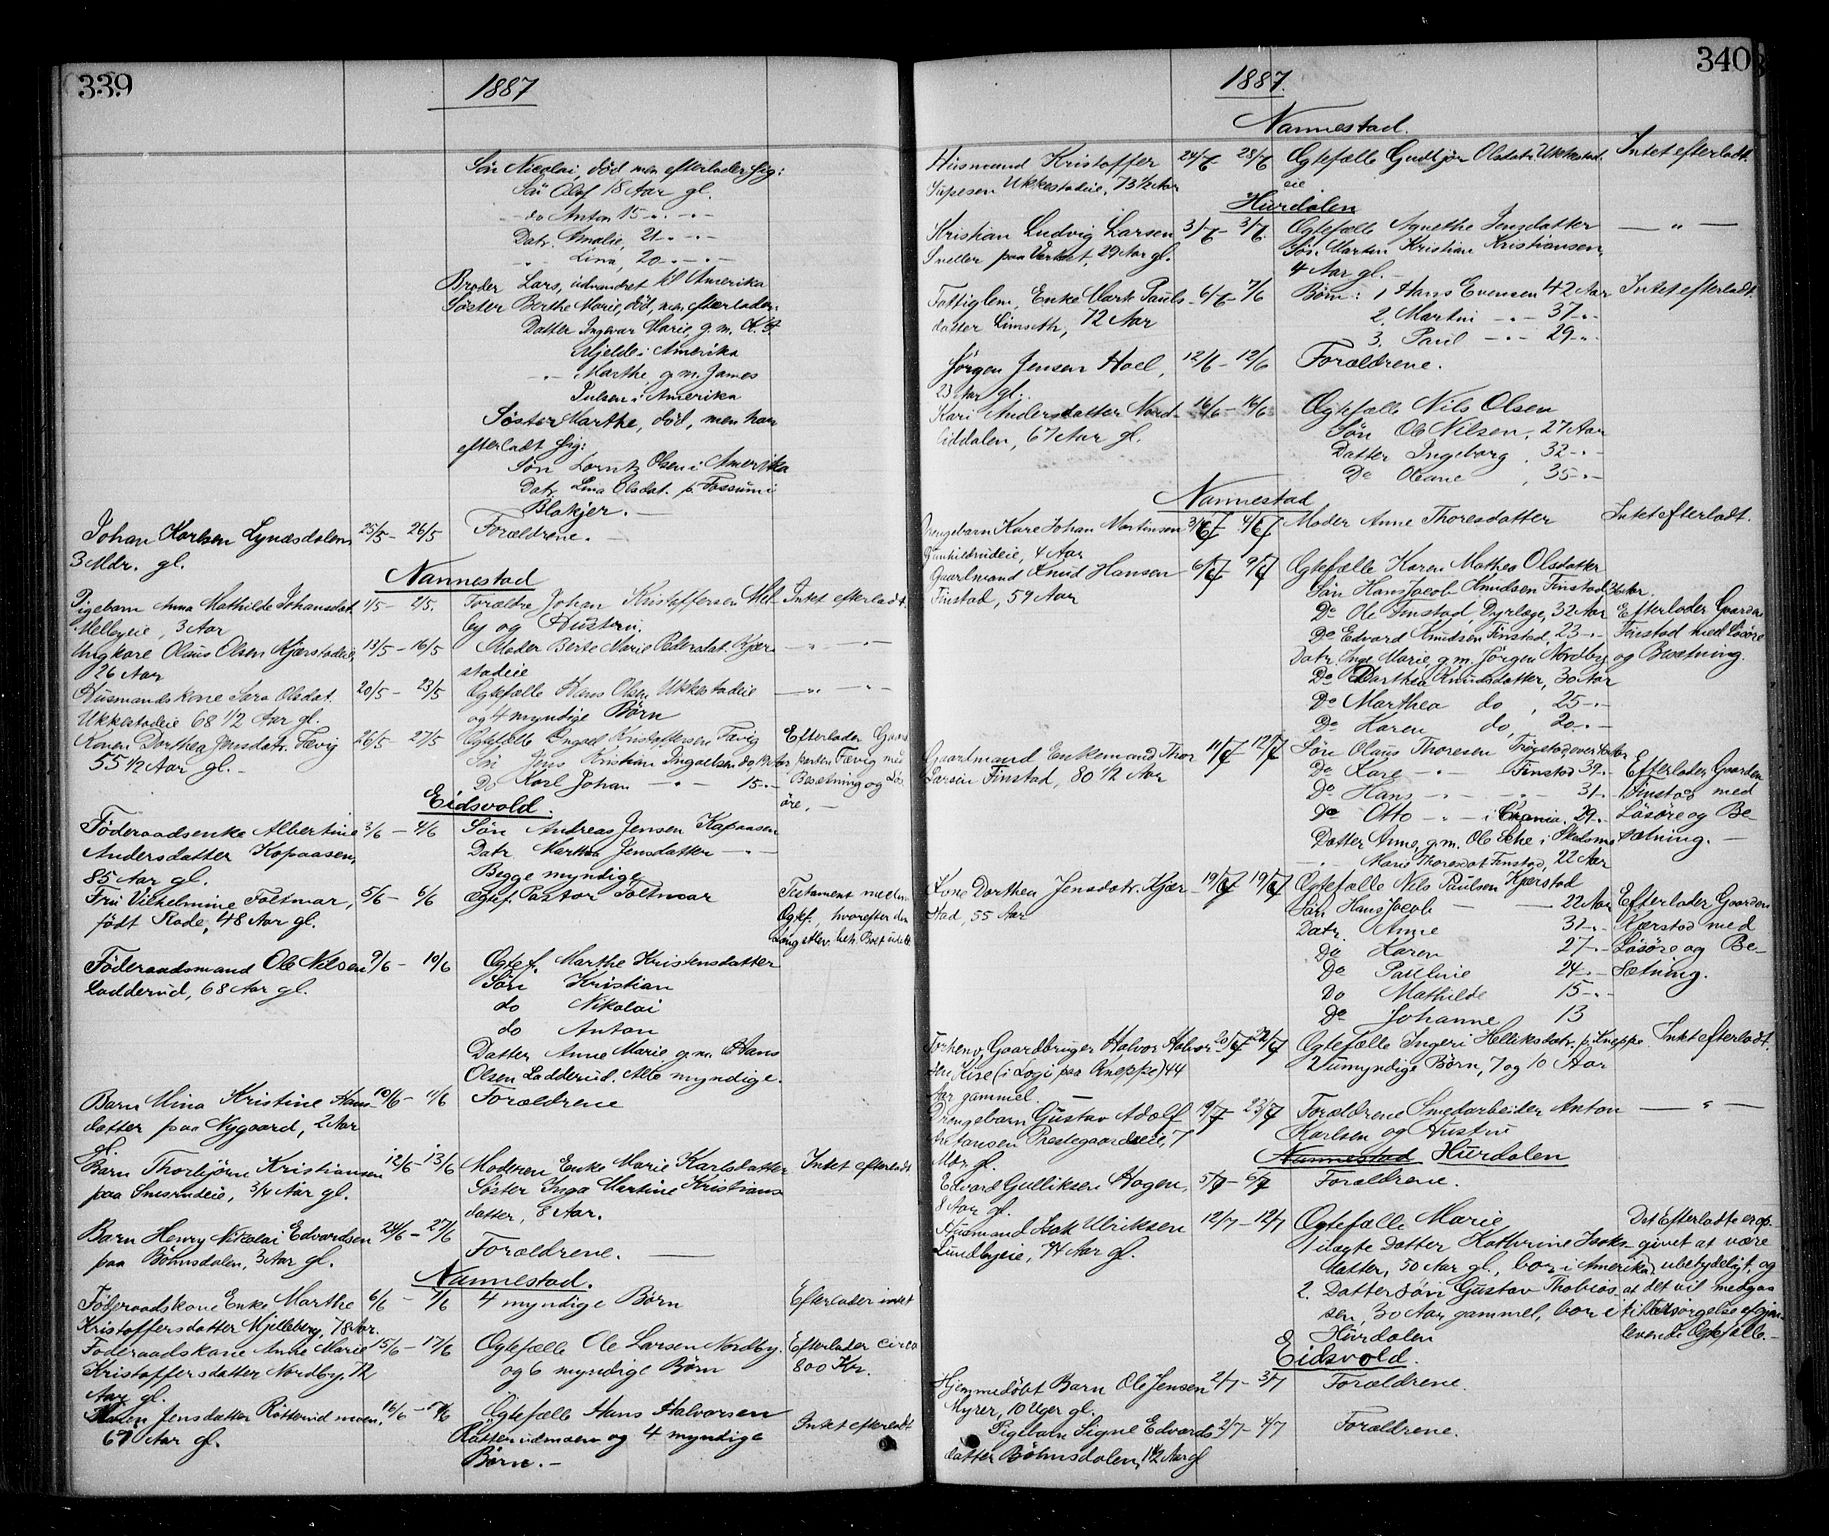 339
1887
Søn Nicolai, død men efterlader sig:
Søn Olaf 18 Aar gl.
do Anton 15 -"- -"-
Datr. Amalie, 21 -"- -"-
-"- Lina, 20 -"- -"-
Broder Lars, udvandret til Amerika
Søster Berthe Marie, død, men efterlader:
Datter Ingvar Marie, g. m.
i Amerika
-"- Marthe g. m. James
Julsen i Amerika
Søster Marthe, død, men har
efterladt sig:
Søn Lorntz Olsen i Amerika
Datr. Lina Olsdat. p. Fossum i
Blakjer. —
Johan Karlsen Lynæsdalen 25/5 - 26/5 Forældrene. -
3 Mdr. gl.
Nannestad
Pigebarn Anna Mathilde Johansdat. 1/5 - 2/5. Forældre Johan Kristoffersen Mel- Intet efterladt.
Melbyeie, 3 Aar by og Hustru.
Ungkarl Olaus Olsen Kjærstadeie, 13/5 - 16/5 Moder Berte Marie Pedersdat. Kjær- -"- -"-
26 Aar stadeie
Husmandskone Sara Olsdat. 20/5 - 23/5 Ægtefælle Hans Olsen Ukkestadeie -"- -"-
Ukkestadeie 68 1/2 Aar gl. og 4 myndige Børn
Konen Dorthea Jensdatr. Fævig 26/5 - 27/5 Ægtefælle Ingvel Kristoffersen Fævig Efterlader Gaard
55 1/2 Aar gl. - Søn Jens Kristian Ingvelsen parten Fævig med
Do Karl Johan -"- 15 -"- Besetning og Løs
øre, -
Eidsvold.
Føderaadsenke Albertine 3/6 - 4/6 Søn Andreas Jensen Kopaasen
Andersdatter Kopaasen, Datr. Marthea Jensdatter -"-
85 Aar gl. Begge myndige
Fru Vilhelmine Foltmar, 5/6 - 6/6 Ægtef. Pastor Foltmar Testament mellem
født Rode, 48 Aar gl. Ægtef., hvorefter den
Længstlev. beh. Boet udelt
Føderaadsmand Ole Nilsen 9/6 - 10/6 Ægtef. Marthe Kristensdatter
Ladderud, 68 Aar gl. Søn Kristian
do Nikolai
do Anton
Datter Anne Marie g. m. Hans
Olsen Ladderud. Alle myndige.
Barn Mina Kristine Hans- 10/6 - 11/6 Forældrene
datter paa Nygaard, 2 Aar
gl.
Barn Thorbjørn Kristiansen 12/6 - 13/6 Moderen Enke Marie Karlsdatter Intet efterladt
paa Smsrudeie, 3/4 Aar gl. Søster Inga Martine Kristians
datter, 8 Aar.
Barn Henry Nikolai Edvardsen 24/6 - 27/6 Forældrene. —
paa Bøhnsdalen, 3 Aar gl.
Nannestad.
Føderaadskone Enke Marthe 6/6 - 7/6 4 myndige Børn Efterlader intet
Kristoffersdatter Mjelleberg, 78 Aar.
Føderaadskone Anne Marie 15/6 - 17/6 Ægtefælle Ole Larsen Nordby. Efterlader circa
Kristoffersdatter Nordby. 72 og 6 myndige Børn 800 Kr.
Aar gl.
Karen Jensdatter Røtterudmoen, 16/6 - 17/6 Ægtefælle Hans Halvorsen Intet efterladt
67 Aar gl. Røtterudmoen og 4 myndige
Børn. -
340
1887.
Nannestad.
Husmand Kristoffer 24/6 28/6 Ægtefælle Gudbjør Olsdatr. Ukkestad Intet efterladt.
Ukkestadeie, 73 1/2 Aar eie
Hurdalen
Kristian Ludvig Larsen 3/6 - 3/6. Ægtefælle Agnethe Jensdatter — " —
Sneller paa Værket, 29 Aar gl. Søn Martin Kristian Kristiansen,
4 Aar gl. -
Fattiglem Enke Mart. Pauls- 6/6 - 7/6 Børn: 1 Hans Evensen 42 Aar Intet efterladt.
datter Limseth, 72 Aar 2. Martin -"- 37 -"-
3. Paul -"- 29 -"-
Jørgen Jensen Hoel, 12/6 - 12/6 Forældrene.
23 Aar gl.
Kari Andersdatter Nord- 16/6 - 16/6 Ægtefælle Nils Olsen
liddalen, 67 Aar gl. Søn Ole Nilsen, 27 Aar
Datter Ingeborg, 32 -"-
Do Oleane, 35 -"-
Nannestad
Drengebarn Kare Johan Martinsen 2/7 4/7 Moder Anne Thoresdatter Intet efterladt.
Gunhildrudeie, 4 Aar
Gaardmand Knud Hansen 6/7 9/7 Ægtefælle Karen Mathea Olsdatter
Finstad, 59 Aar Søn Hans Jacob Knudsen Finstad 36 Aar.
Do Ole Finstad Dyrlæge, 32 Aar Efterlader Gaarden
Do Edvard Knudsen Finstad, 23 -"- Finstad med Løsøre
Datr. Inge Marie g. m. Jørgen Nordby og Besætning.
Do Dorthea Knudsdatter, 30 Aar
Do Marthea do, 25 -"-
Do Karen do, 20 -"-
Gaardmand Enkemand Thor 11/7 12/7 Søn Olaus Thoresen
Larsen Finstad, 80 1/2 Aar Do Kare -"- Finstad 39 -"- Efterlader Gaarden
Do Hans -"- -"- 31 -"- Finstad med
Do Otto -"- i Crania. 29 -"- Løsøre og Be-
Datter Anne, g. m. Ole i Skedsmo sætning. —
-"- Maria Thoresdat Finstad, 22 Aar
Kone Dorthea Jensdatr. Kjær- 19/7 19/7 Ægtefælle Nils Paulsen Kjærstad
stad, 55 Aar Søn Hans Jacob — 22 Aar Efterlader Gaarden
Datr. Anne 31 -"- Kjærstad med
Do Karen 27 -"- Løsøre og Be-
Do Pauline 24 -"- sætning.
Do Mathilde 15 -"-
Do Johanne 13
Forhenv. Gaardbruger Halvor Halvor- 20/7 22/7 Ægtefælle Ingeri Helliksdatr. p. Kneppe Intet efterladt.
sen Kise (i Logi paa Kneppe) 44 2 umyndige Børn, 7 og 10 Aar
Aar gammel. —
Drengebarn Gustav Adolf 19/7 23/7 Forældrene Smedarbeider Anton — " —
Antonsen Prestegaardseie, 7 Karlsen og Hustru
Mdr. gl.
Nannestad Hurdalen
Edvard Gulliksen Hagen, 5/7 - 6/7 Forældrene.
8 Aar gl.
Husmand Isak Ulriksen 12/7 - 12/7 Ægtefælle Marie Det Efterladte er op-
Lundbyeie, 74 Aar gl. 1 uægte Datter Kathrine Isaks- givet at være
datter, 50 Aar gl., bor i Amerika, ubetydeligt, og
2. Dattersøn Gustav Thobias- at det vil medgaa
sen, 30 Aar gammel, bor i til Forsørgelse af gjen-
Hurdalen levende Ægtefælle. -
Eidsvold.
Hjemmedøbt Barn Ole Jensen 2/7 - 3/7 Forældrene.
Myrer, 10 Uger gl.
Pigebarn Signe Edvards 2/7 - 4/7 Forældrene.
datter Bøhnsdalen, 1 1/2 Aar gl